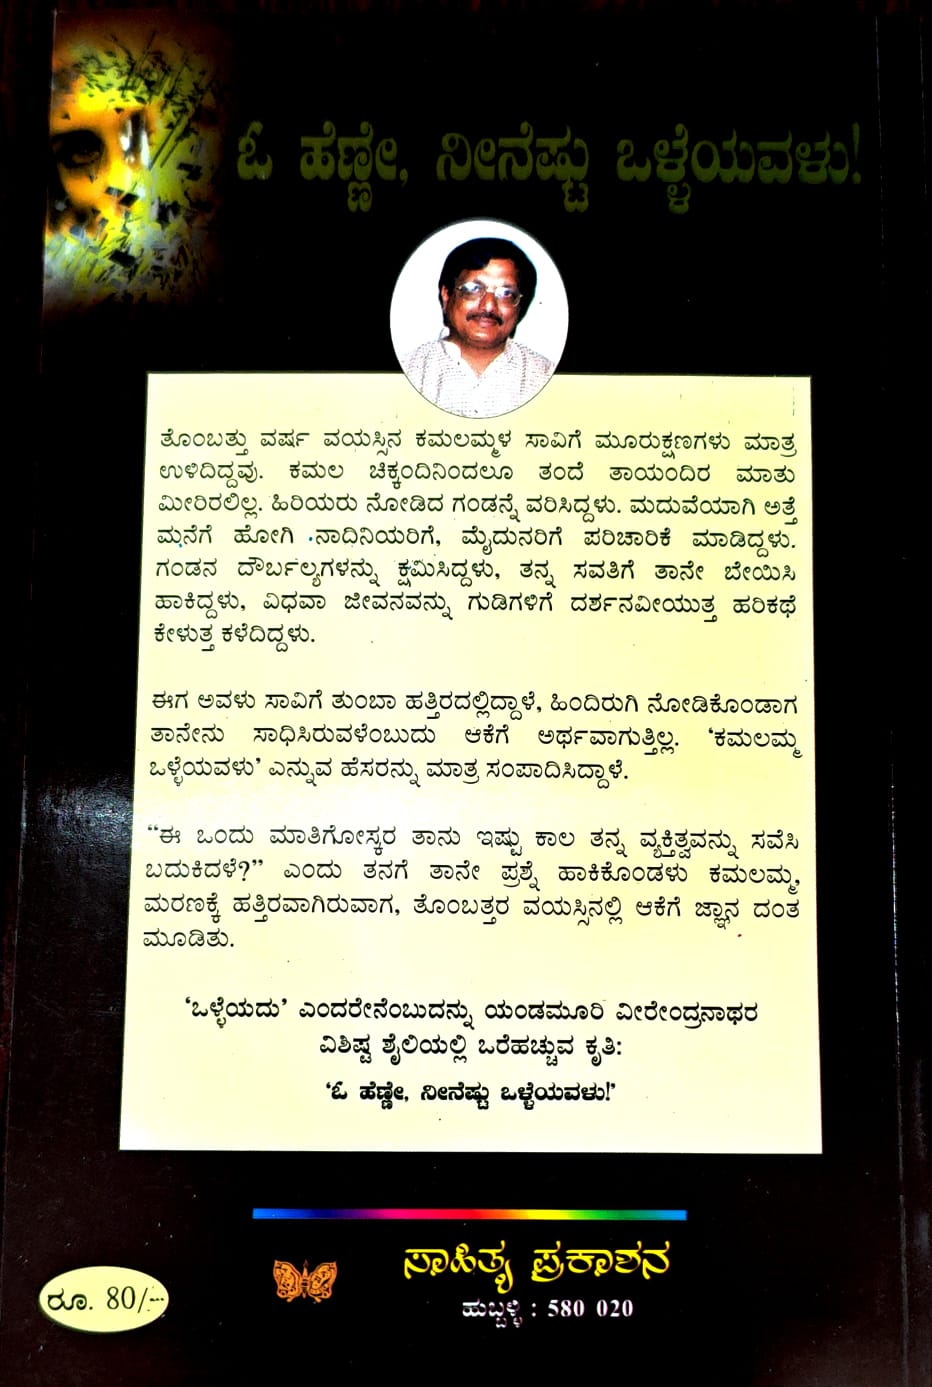 ಓ ಹೆಣ್ಣೇ, ನೀನೆಷ್ಟು ಒಳ್ಳೆಯವಳು!
ತೊಂಬತ್ತು ವರ್ಷ ವಯಸ್ಸಿನ ಕಮಲಮ್ಮಳ ಸಾವಿಗೆ ಮೂರುಕ್ಷಣಗಳು ಮಾತ್ರ
ಉಳಿದಿದ್ದವು. ಕಮಲ ಚಿಕ್ಕಂದಿನಿಂದಲೂ ತಂದೆ ತಾಯಂದಿರ ಮಾತು
ಮೀರಿರಲಿಲ್ಲ. ಹಿರಿಯರು ನೋಡಿದ ಗಂಡನ್ನೆ ವರಿಸಿದ್ದಳು. ಮದುವೆಯಾಗಿ ಅತ್ತೆ
ಮನೆಗೆ ಹೋಗಿ ನಾದಿನಿಯರಿಗೆ, ಮೈದುನರಿಗೆ ಪರಿಚಾರಿಕೆ ಮಾಡಿದ್ದಳು.
ಗಂಡನ ದೌರ್ಬಲ್ಯಗಳನ್ನು ಕ್ಷಮಿಸಿದ್ದಳು, ತನ್ನ ಸವತಿಗೆ ತಾನೇ ಬೇಯಿಸಿ
ಹಾಕಿದ್ದಳು, ವಿಧವಾ ಜೀವನವನ್ನು ಗುಡಿಗಳಿಗೆ ದರ್ಶನವೀಯುತ್ತ ಹರಿಕಥೆ
ಕೇಳುತ್ತ ಕಳೆದಿದ್ದಳು.
ಈಗ ಅವಳು ಸಾವಿಗೆ ತುಂಬಾ ಹತ್ತಿರದಲ್ಲಿದ್ದಾಳೆ, ಹಿಂದಿರುಗಿ ನೋಡಿಕೊಂಡಾಗ
ತಾನೇನು ಸಾಧಿಸಿರುವಳೆಂಬುದು ಆಕೆಗೆ ಅರ್ಥವಾಗುತ್ತಿಲ್ಲ. ‘ಕಮಲಮ್ಮ
ಒಳ್ಳೆಯವಳು’ ಎನ್ನುವ ಹೆಸರನ್ನು ಮಾತ್ರ ಸಂಪಾದಿಸಿದ್ದಾಳೆ.
“ಈ ಒಂದು ಮಾತಿಗೋಸ್ಕರ ತಾನು ಇಷ್ಟು ಕಾಲ ತನ್ನ ವ್ಯಕ್ತಿತ್ವವನ್ನು ಸವೆಸಿ
ಬದುಕಿದಳೆ?” ಎಂದು ತನಗೆ ತಾನೇ ಪ್ರಶ್ನೆ ಹಾಕಿಕೊಂಡಳು ಕಮಲಮ್ಮ,
ಮರಣಕ್ಕೆ ಹತ್ತಿರವಾಗಿರುವಾಗ, ತೊಂಬತ್ತರ ವಯಸ್ಸಿನಲ್ಲಿ ಆಕೆಗೆ ಜ್ಞಾನ ದಂತ
ಮೂಡಿತು.
‘ಒಳ್ಳೆಯದು’ ಎಂದರೇನೆಂಬುದನ್ನು ಯಂಡಮೂರಿ ವೀರೇಂದ್ರನಾಥರ
ವಿಶಿಷ್ಟ ಶೈಲಿಯಲ್ಲಿ ಒರೆಹಚ್ಚುವ ಕೃತಿ:
‘ಓ ಹೆಣ್ಣೇ, ನೀನೆಷ್ಟು ಒಳ್ಳೆಯವಳು!’
ಸಾಹಿತ್ಯ ಪ್ರಕಾಶನ
ಹುಬ್ಬಳ್ಳಿ : 580 020
ರೂ. 80/-